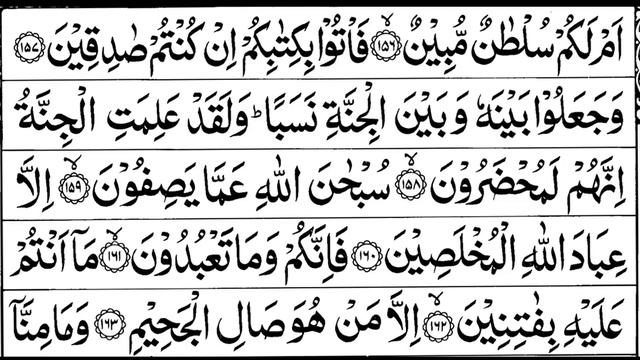 اَمۡ لَكُمۡ سُلۡطٰنٌ مُّبِيۡنٌ ۙ‏﴿۱۵۶﴾ فَاۡتُوۡا بِكِتٰبِكُمۡ اِنۡ كُنۡتُمۡ صٰدِقِيۡنَ‏﴿۱۵۷﴾
وَجَعَلُوۡا بَيۡنَهٗ وَبَيۡنَ الۡجِنَّةِ نَسَبًا ؕ وَلَقَدۡ عَلِمَتِ الۡجِنَّةُ
اِنَّهُمۡ لَمُحۡضَرُوۡنَۙ‏﴿۱۵۸﴾ سُبۡحٰنَ اللّٰهِ عَمَّا يَصِفُوۡنَۙ‏﴿۱۵۹﴾ اِلَّا
عِبَادَ اللّٰهِ الۡمُخۡلَصِيۡنَ‏﴿۱۶۰﴾ فَاِنَّكُمۡ وَمَا تَعۡبُدُوۡنَۙ‏﴿۱۶۱﴾ مَاۤ اَنۡـتُمۡ
عَلَيۡهِ بِفٰتِنِيۡنَۙ‏﴿۱۶۲﴾ اِلَّا مَنۡ هُوَ صَالِ الۡجَحِيۡمِ‏﴿۱۶۳﴾ وَمَا مِنَّاۤ